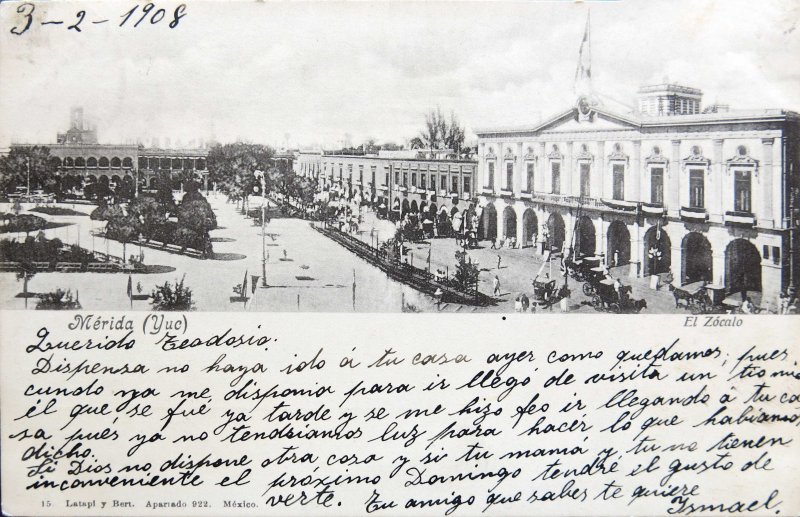 3-2-1908
Mérida (Yuc)
El Zócalo
Querido Teodosio.
Dispensa no haya ido á tu casa ayer como quedamos; pues
cuando ya me disponia para ir llegó de visita un tio mio
el qué se fué ya tarde y se me hizo feo ir, llegando á tu ca
sa pués ya no tendriamos luz para hacer lo que habiamos
dicho.
Si Dios no dispone otra cosa y si tu mamá y tu no tienen
inconveniente el próximo Domingo tendré el gusto de
verte. Tu amigo que sabes te quiere
Ismael.
15. Latapi y Bert. Apartado 922. México.